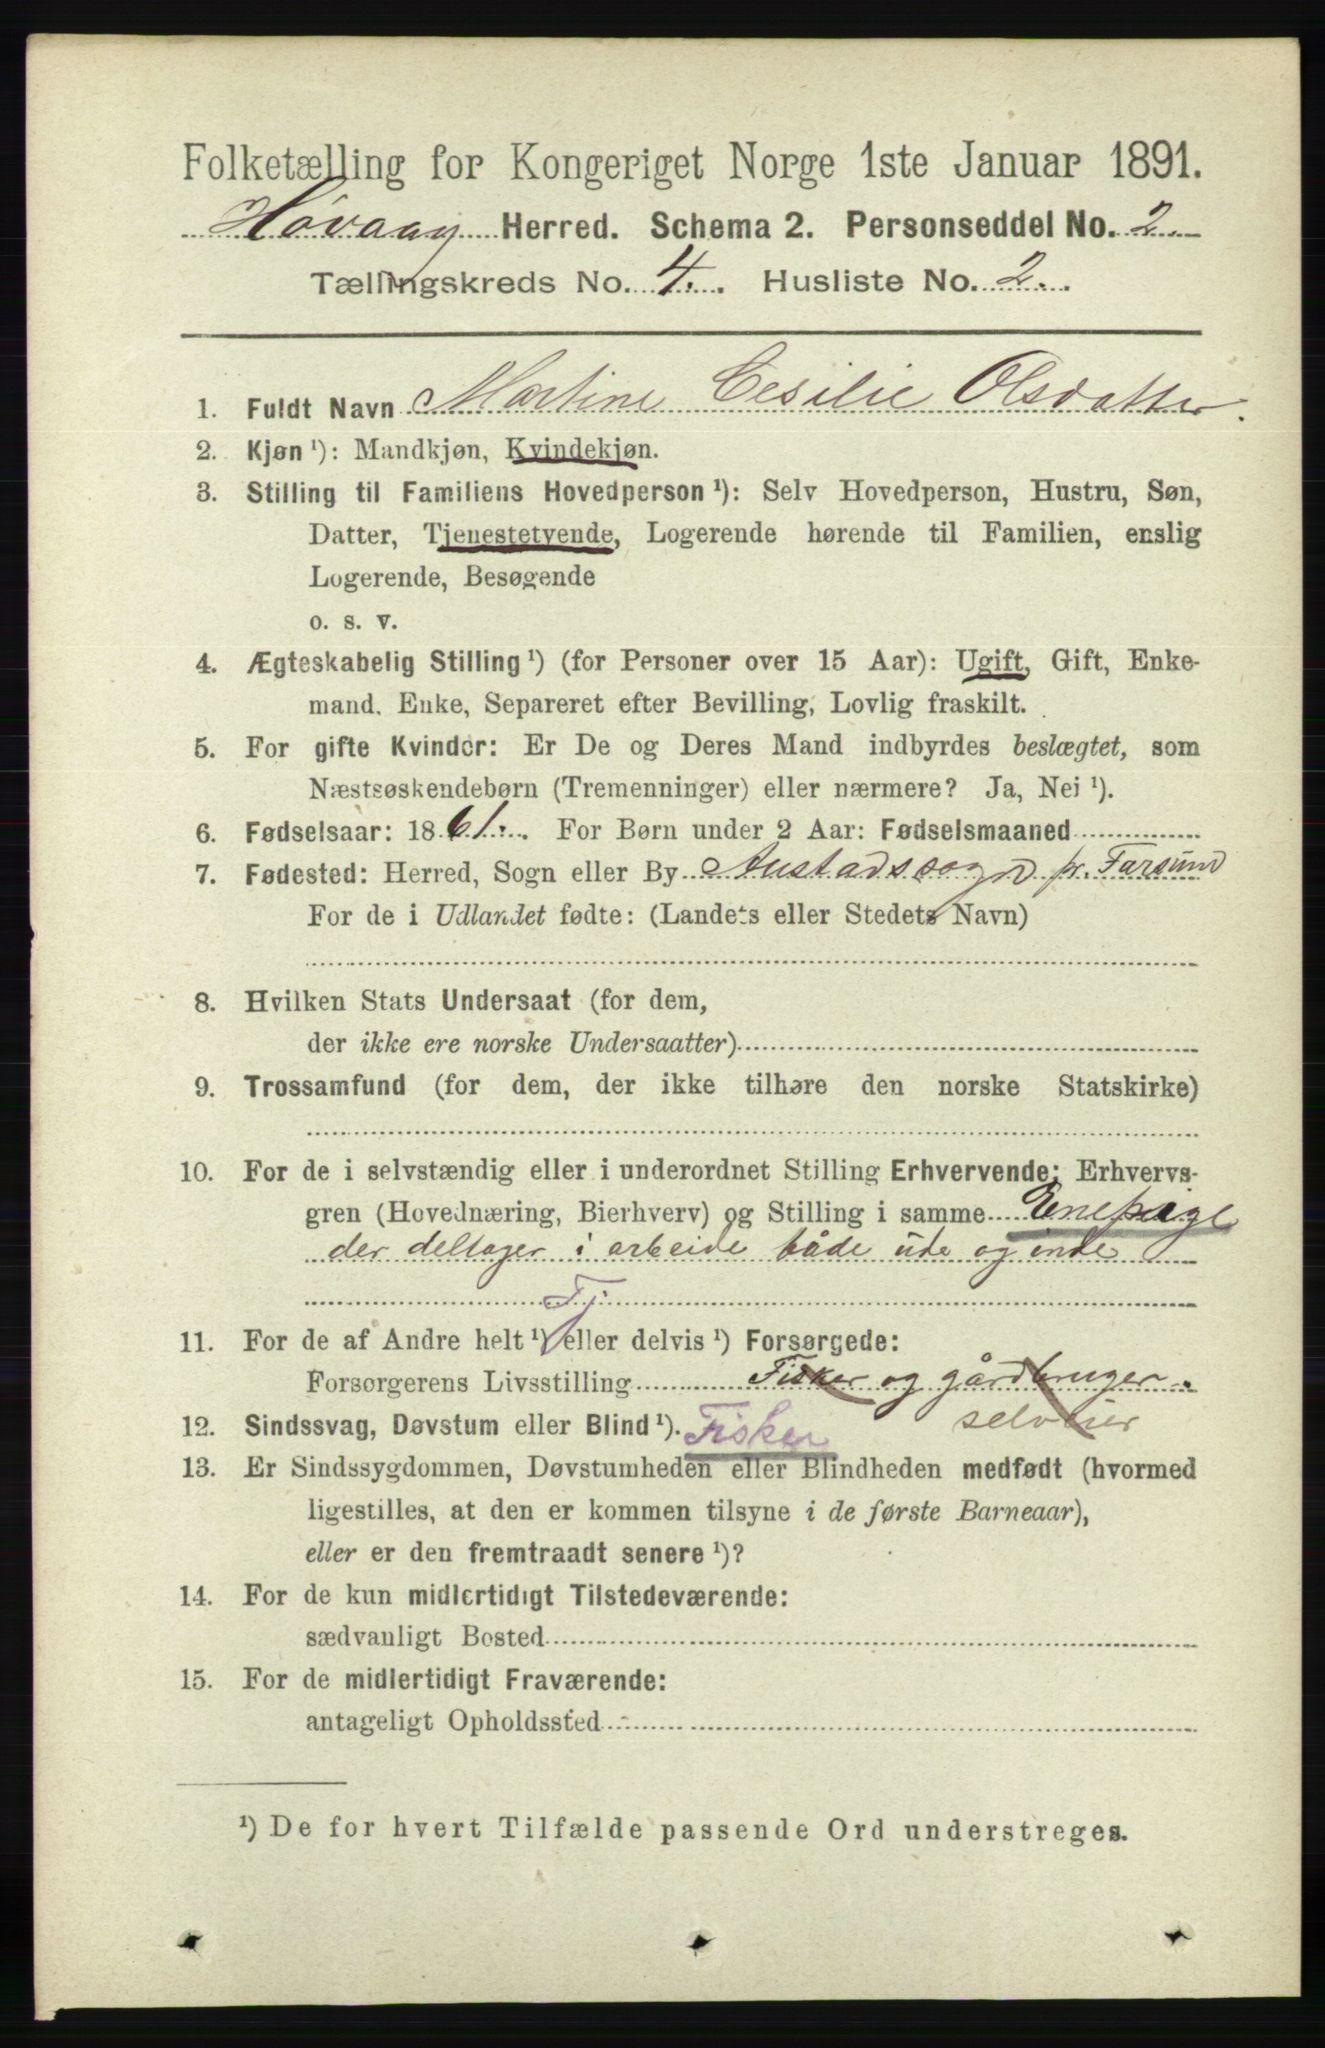 Folketælling for Kongeriget Norge 1ste Januar 1891.
Høvaag Herred. Schema 2. Personseddel No. 2.
Tællingskreds No. 4. Husliste No. 2.
1. Fuldt Navn Martine Cesilie Olsdatter.
2. Kjøn ¹): Mandkjøn, Kvindekjøn.
3. Stilling til Familiens Hovedperson ¹): Selv Hovedperson, Hustru, Søn,
Datter, Tjenestetyende, Logerende hørende til Familien, enslig
Logerende, Besøgende
o. s. v.
4. Ægteskabelig Stilling ¹) (for Personer over 15 Aar): Ugift, Gift, Enke-
mand, Enke, Separeret efter Bevilling, Lovlig fraskilt.
5. For gifte Kvinder: Er De og Deres Mand indbyrdes beslægtet, som
Næstsøskendebørn (Tremenninger) eller nærmere? Ja, Nei ¹).
6. Fødselsaar: 1861. For Børn under 2 Aar: Fødselsmaaned
7. Fødested: Herred, Sogn eller By Austadsogn pr. Farsund
For de i Udlandet fødte: (Landets eller Stedets Navn)
8. Hvilken Stats Undersaat (for dem,
der ikke ere norske Undersaatter)
9. Trossamfund (for dem, der ikke tilhøre den norske Statskirke)
10. For de i selvstændig eller i underordnet Stilling Erhvervende: Erhvervs-
gren (Hovednæring, Bierhverv) og Stilling i samme Enepige
der deltager i arbeide både ude og inde
Tj
11. For de af Andre helt ¹) eller delvis ¹) Forsørgede:
Forsørgerens Livsstilling Fisker og gårdbruger
selveier
12. Sindssvag, Døvstum eller Blind ¹). Fisker
13. Er Sindssygdommen, Døvstumheden eller Blindheden medfødt (hvormed
ligestilles, at den er kommen tilsyne i de første Barneaar),
eller er den fremtraadt senere ¹)?
14. For de kun midlertidigt Tilstedeværende:
sædvanligt Bosted
15. For de midlertidigt Fraværende:
antageligt Opholdssted
¹) De for hvert Tilfælde passende Ord understreges.